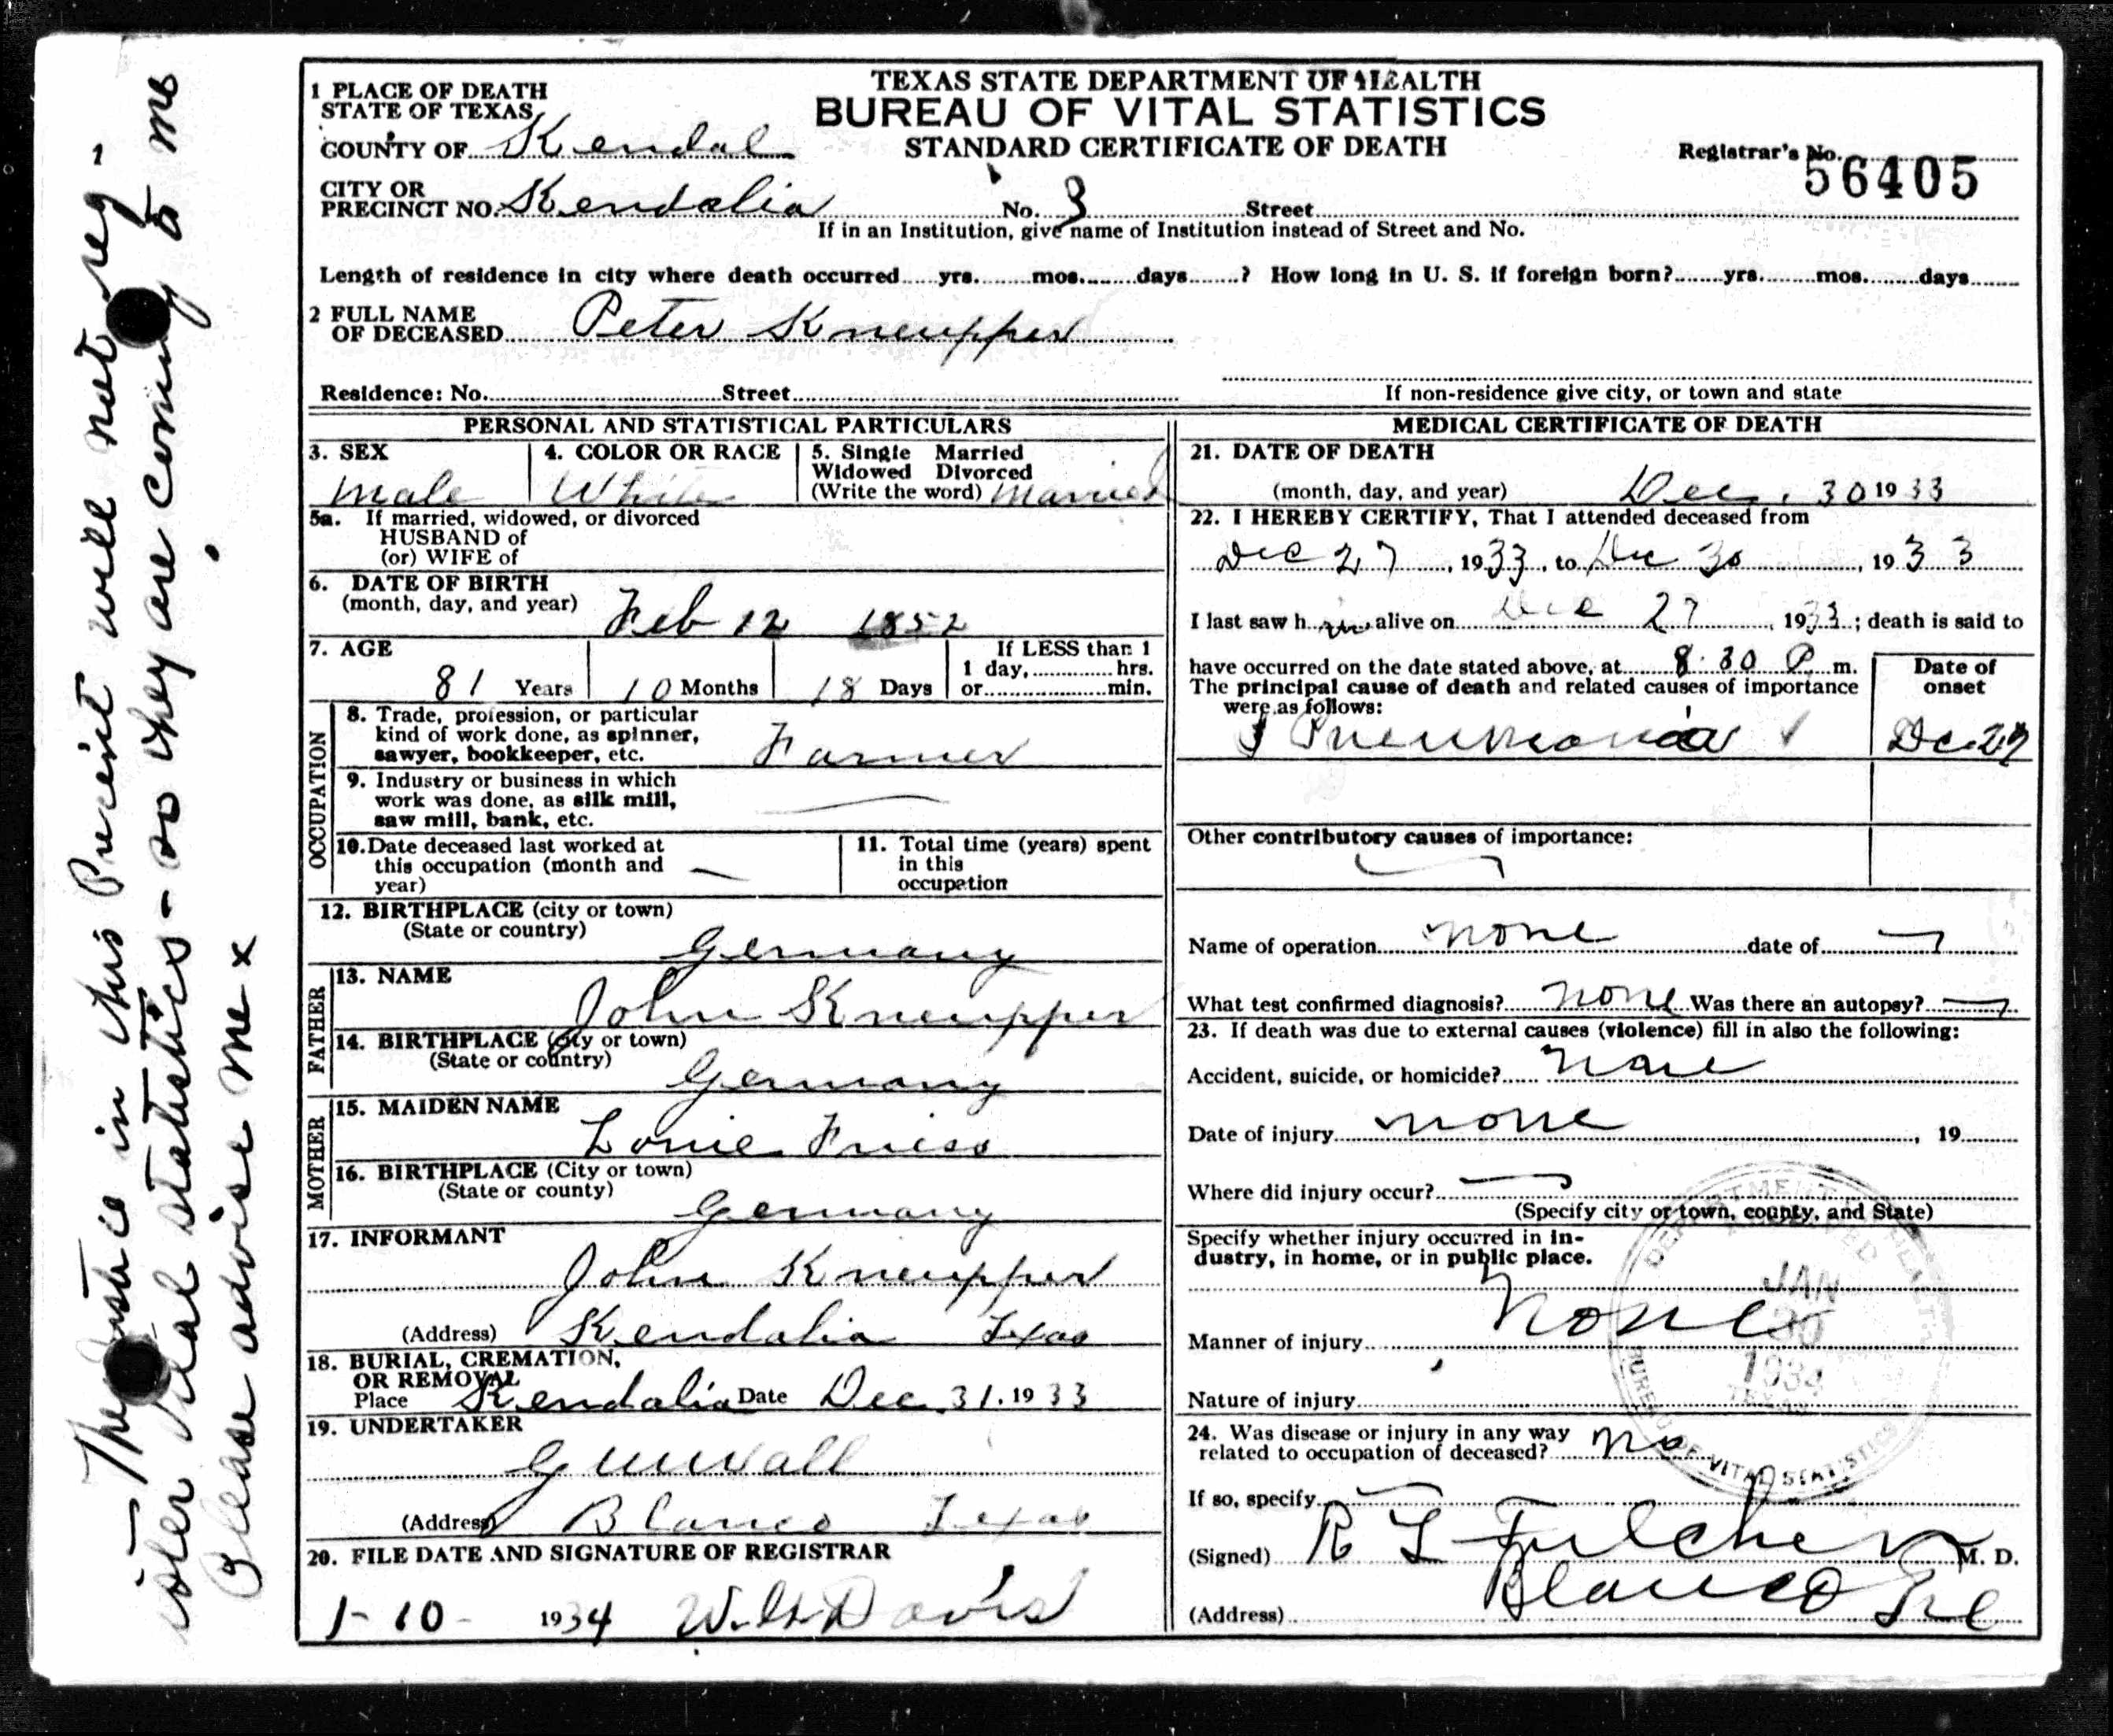 TEXAS STATE DEPARTMENT OF HEALTH
BUREAU OF VITAL STATISTICS
STANDARD CERTIFICATE OF DEATH
1 PLACE OF DEATH
STATE OF TEXAS
COUNTY OF Kendal
Registrar's No. 56405
CITY OR
PRECINCT NO. Kendalia No. 3 Street
If in an Institution, give name of Institution instead of Street and No.
Length of residence in city where death occurred yrs. mos. days ? How long in U. S. if foreign born? yrs. mos. days
2 FULL NAME
OF DECEASED Peter Kneupper
Residence: No. Street
If non-residence give city, or town and state
PERSONAL AND STATISTICAL PARTICULARS
3. SEX
Male
4. COLOR OR RACE
White
5. Single Married
Widowed Divorced
(Write the word) Married
5a. If married, widowed, or divorced
HUSBAND of
(or) WIFE of
6. DATE OF BIRTH
(month, day, and year) Feb 12 1852
7. AGE
81 Years 10 Months 18 Days
If LESS than 1
1 day, hrs.
or min.
OCCUPATION
8. Trade, profession, or particular
kind of work done, as spinner,
sawyer, bookkeeper, etc. Farmer
9. Industry or business in which
work was done, as silk mill,
saw mill, bank, etc.
10. Date deceased last worked at
this occupation (month and
year) —
11. Total time (years) spent
in this
occupation
12. BIRTHPLACE (city or town)
(State or country) Germany
FATHER
13. NAME
John Kneupper
14. BIRTHPLACE (City or town)
(State or country) Germany
MOTHER
15. MAIDEN NAME
Louie Friess
16. BIRTHPLACE (City or town)
(State or county) Germany
17. INFORMANT
John Kneupper
(Address) Kendalia Texas
18. BURIAL, CREMATION,
OR REMOVAL
Place Kendalia Date Dec. 31. 1933
19. UNDERTAKER
(Address) Blanco Texas
20. FILE DATE AND SIGNATURE OF REGISTRAR
1-10- 1934 Davis
MEDICAL CERTIFICATE OF DEATH
21. DATE OF DEATH
(month, day, and year) Dec. 30 1933
22. I HEREBY CERTIFY, That I attended deceased from
Dec 27, 1933, to Dec 30, 1933
I last saw him alive on Dec 27, 1933; death is said to
have occurred on the date stated above, at 8:30 P. m.
The principal cause of death and related causes of importance
were as follows:
Date of
onset
Pneumonia Dec 27
Other contributory causes of importance:
Name of operation none date of
What test confirmed diagnosis? none Was there an autopsy?
23. If death was due to external causes (violence) fill in also the following:
Accident, suicide, or homicide? None
Date of injury none, 19
Where did injury occur?
(Specify city or town, county, and State)
Specify whether injury occurred in in-
dustry, in home, or in public place.
Manner of injury None
Nature of injury
24. Was disease or injury in any way
related to occupation of deceased? no
If so, specify
(Signed) R L Fulcher M. D.
(Address) Blanco Tex
DEPARTMENT OF HEALTH
RECEIVED
JAN
30
1934
TEXAS
BUREAU OF VITAL STATISTICS
The Justice in this Precinct will not reg-
ister Vital statistics - so they are coming to me
Please advise me x